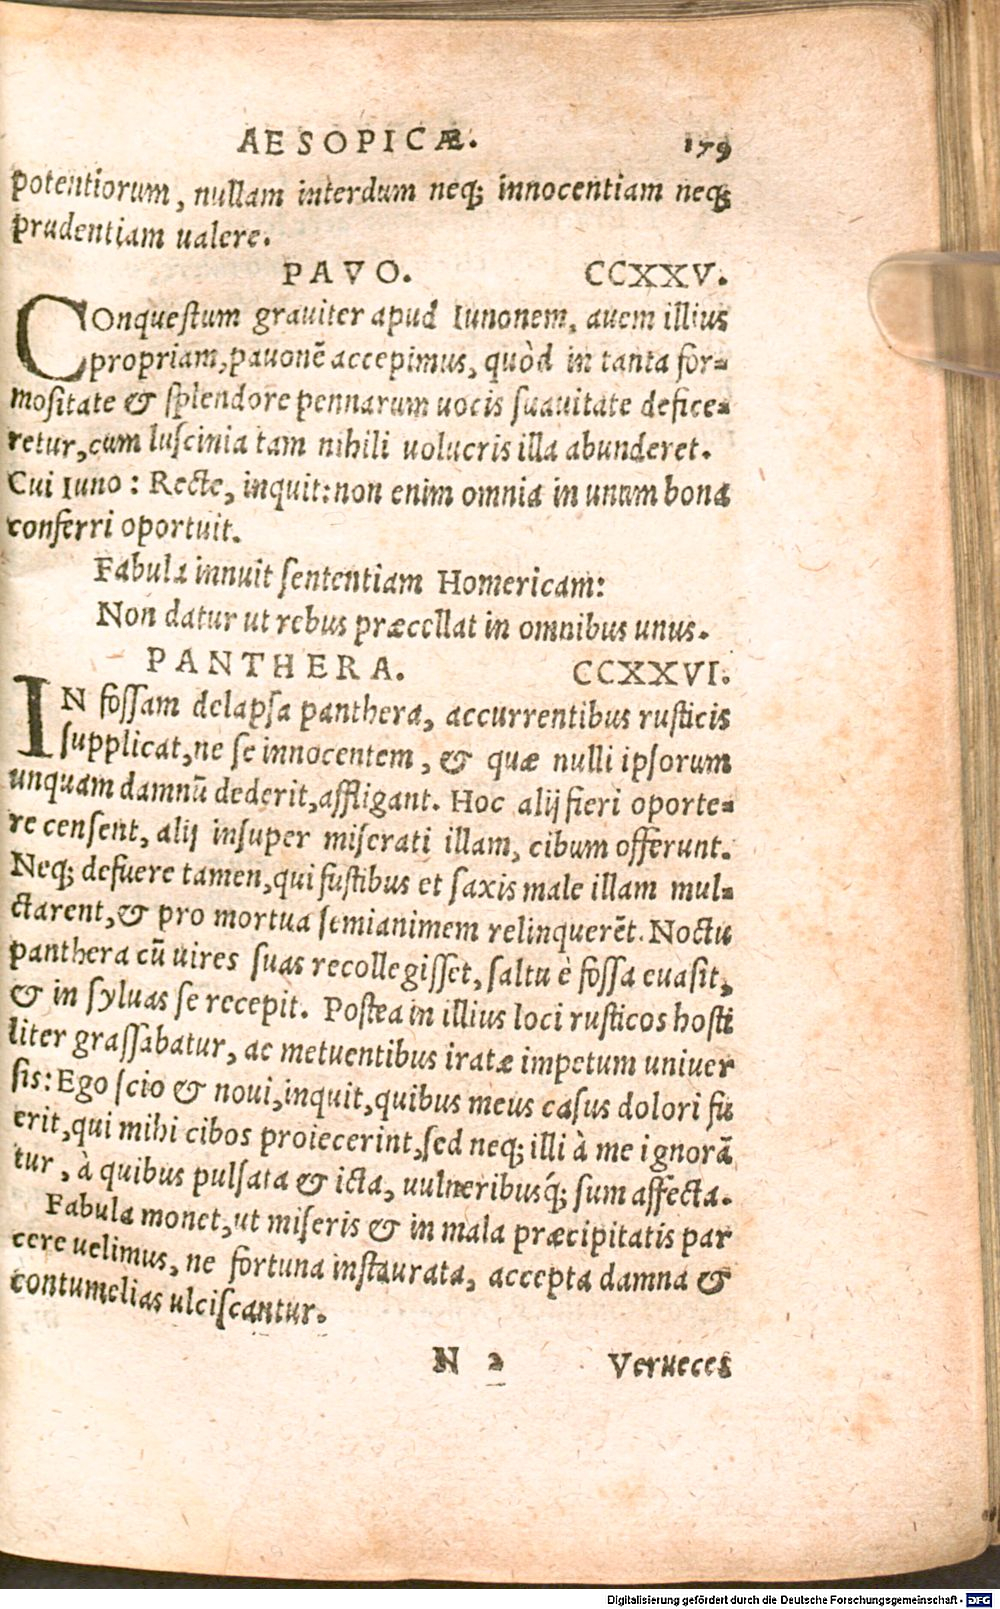 AESOPICÆ. 179
potentiorum, nullam interdum neq; innocentiam neq;
prudentiam ualere.
PAVO. CCXXV.
COnquestum grauiter apud Iunonem, auem illius
propriam, pauonē accepimus, quòd in tanta for-
mositate & splendore pennarum uocis suauitate defice-
retur, cum luscinia tam nihili uolucris illa abunderet.
Cui Iuno: Recte, inquit: non enim omnia in unum bona
conferri oportuit.
Fabula innuit sententiam Homericam:
Non datur ut rebus præcellat in omnibus unus.
PANTHERA. CCXXVI.
IN fossam delapsa panthera, accurrentibus rusticis
supplicat, ne se innocentem, & quæ nulli ipsorum
unquam damnū dederit, affligant. Hoc alij fieri oporte-
re censent, alij insuper miserati illam, cibum offerunt.
Neq; defuere tamen, qui fustibus et saxis male illam mul-
ctarent, & pro mortua semianimem relinquerēt. Noctu
panthera cū uires suas recollegisset, saltu è fossa euasit,
& in syluas se recepit. Postea in illius loci rusticos hosti
liter grassabatur, ac metuentibus iratæ impetum uniuer
sis: Ego scio & noui, inquit, quibus meus casus dolori fu
erit, qui mihi cibos proiecerint, sed neq; illi à me ignorā
tur, à quibus pulsata & icta, uulneribusq́; sum affecta.
Fabula monet, ut miseris & in mala præcipitatis par
cere uelimus, ne fortuna instaurata, accepta damna &
contumelias ulciscantur.
N 2 Verueces
Digitalisierung gefördert durch die Deutsche Forschungsgemeinschaft - DFG